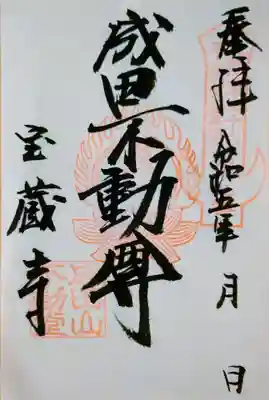 奉拝
令和五年 月 日
成田不動尊
宝蔵寺